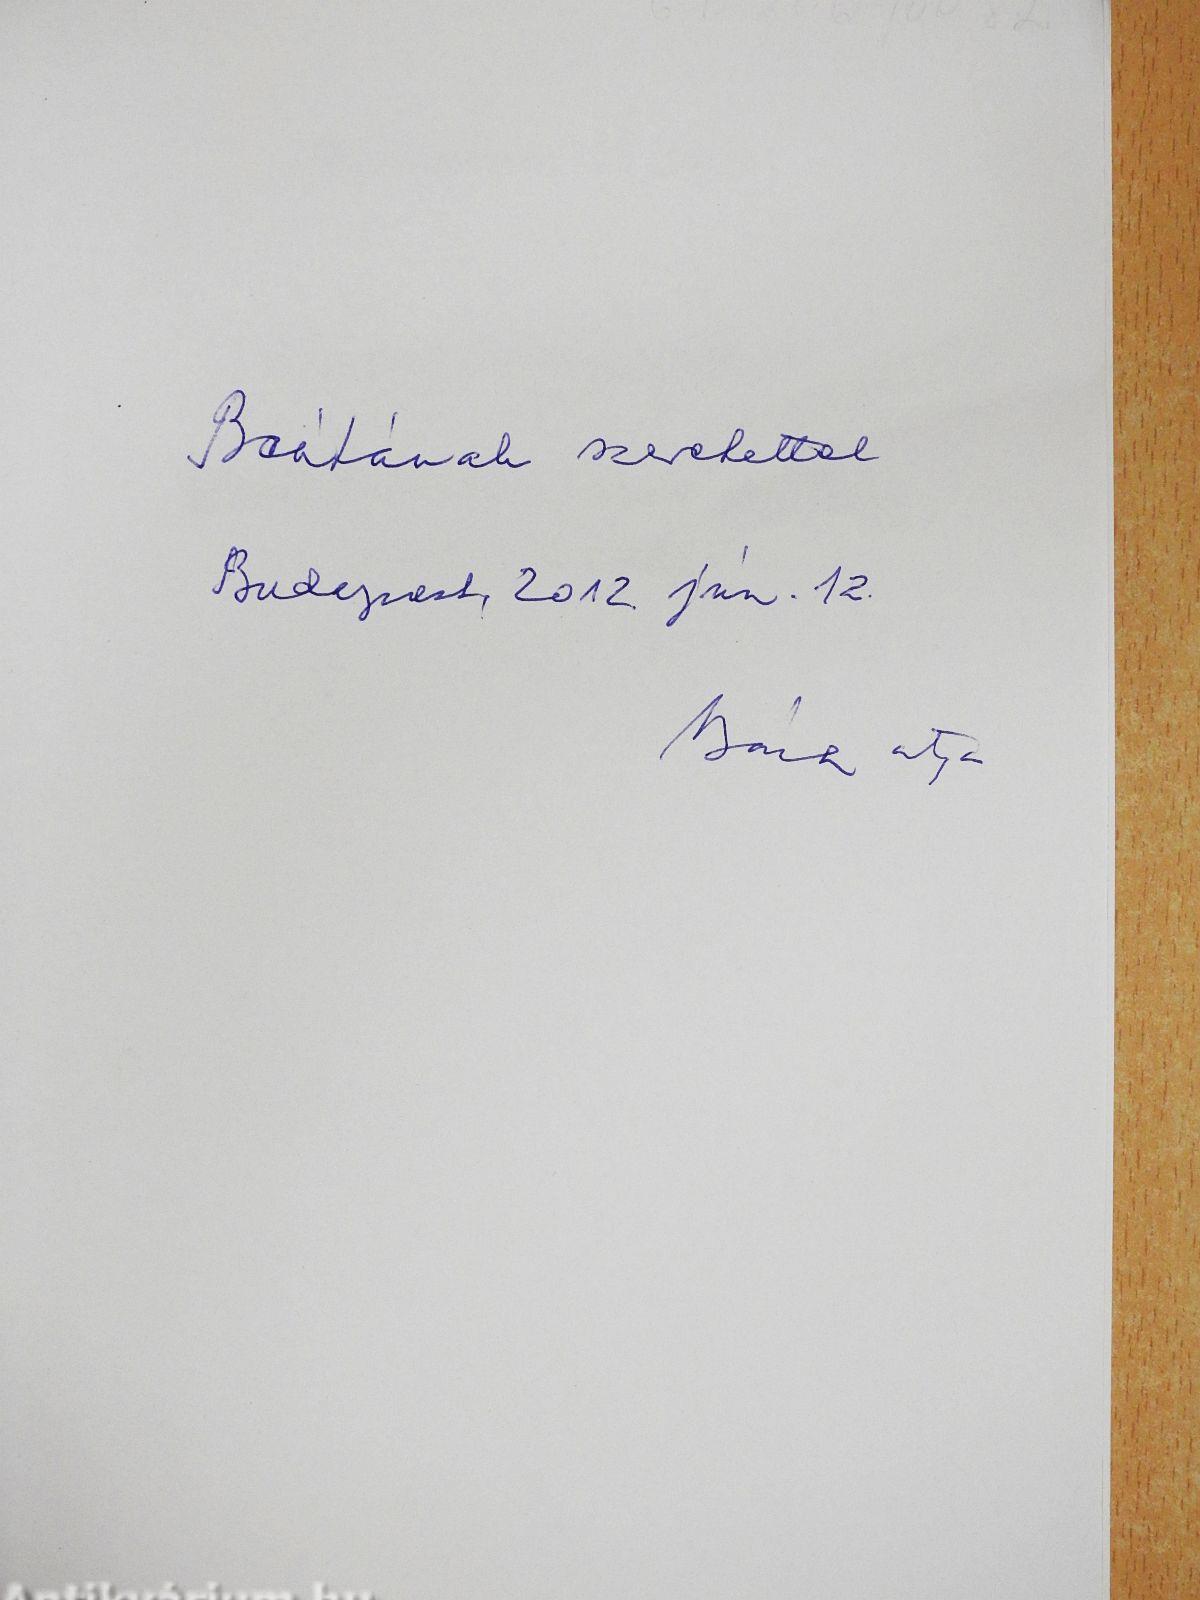 Beátának szeretettel
Budapest, 2012 jún. 12.
atya
Antikvárium.hu